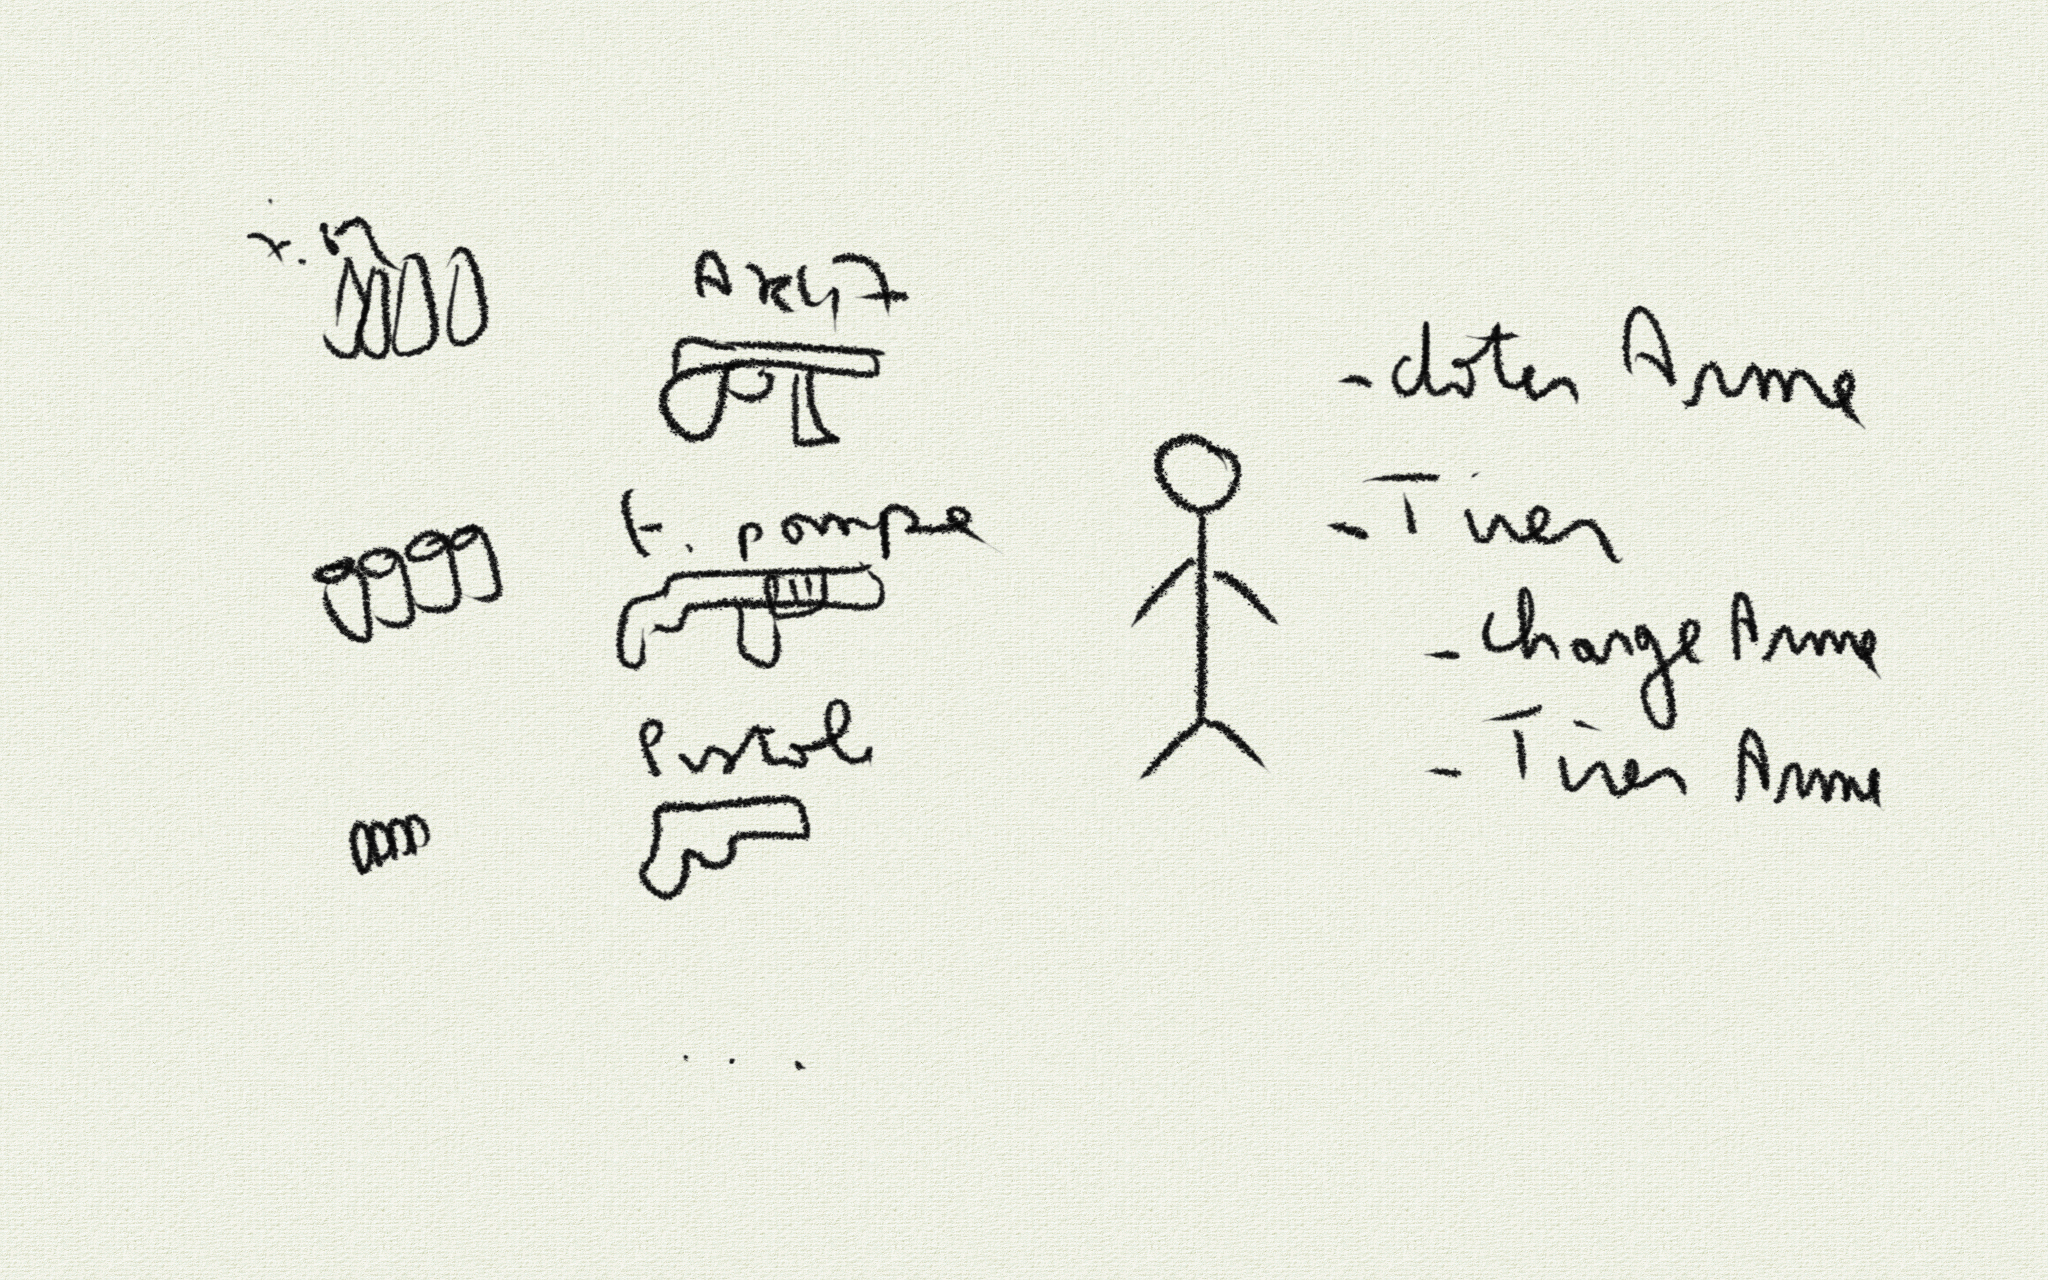 AK47
t. pompe
Pistol
- doter Arme
- Tirer
- Change Arme
- Tirer Arme
...